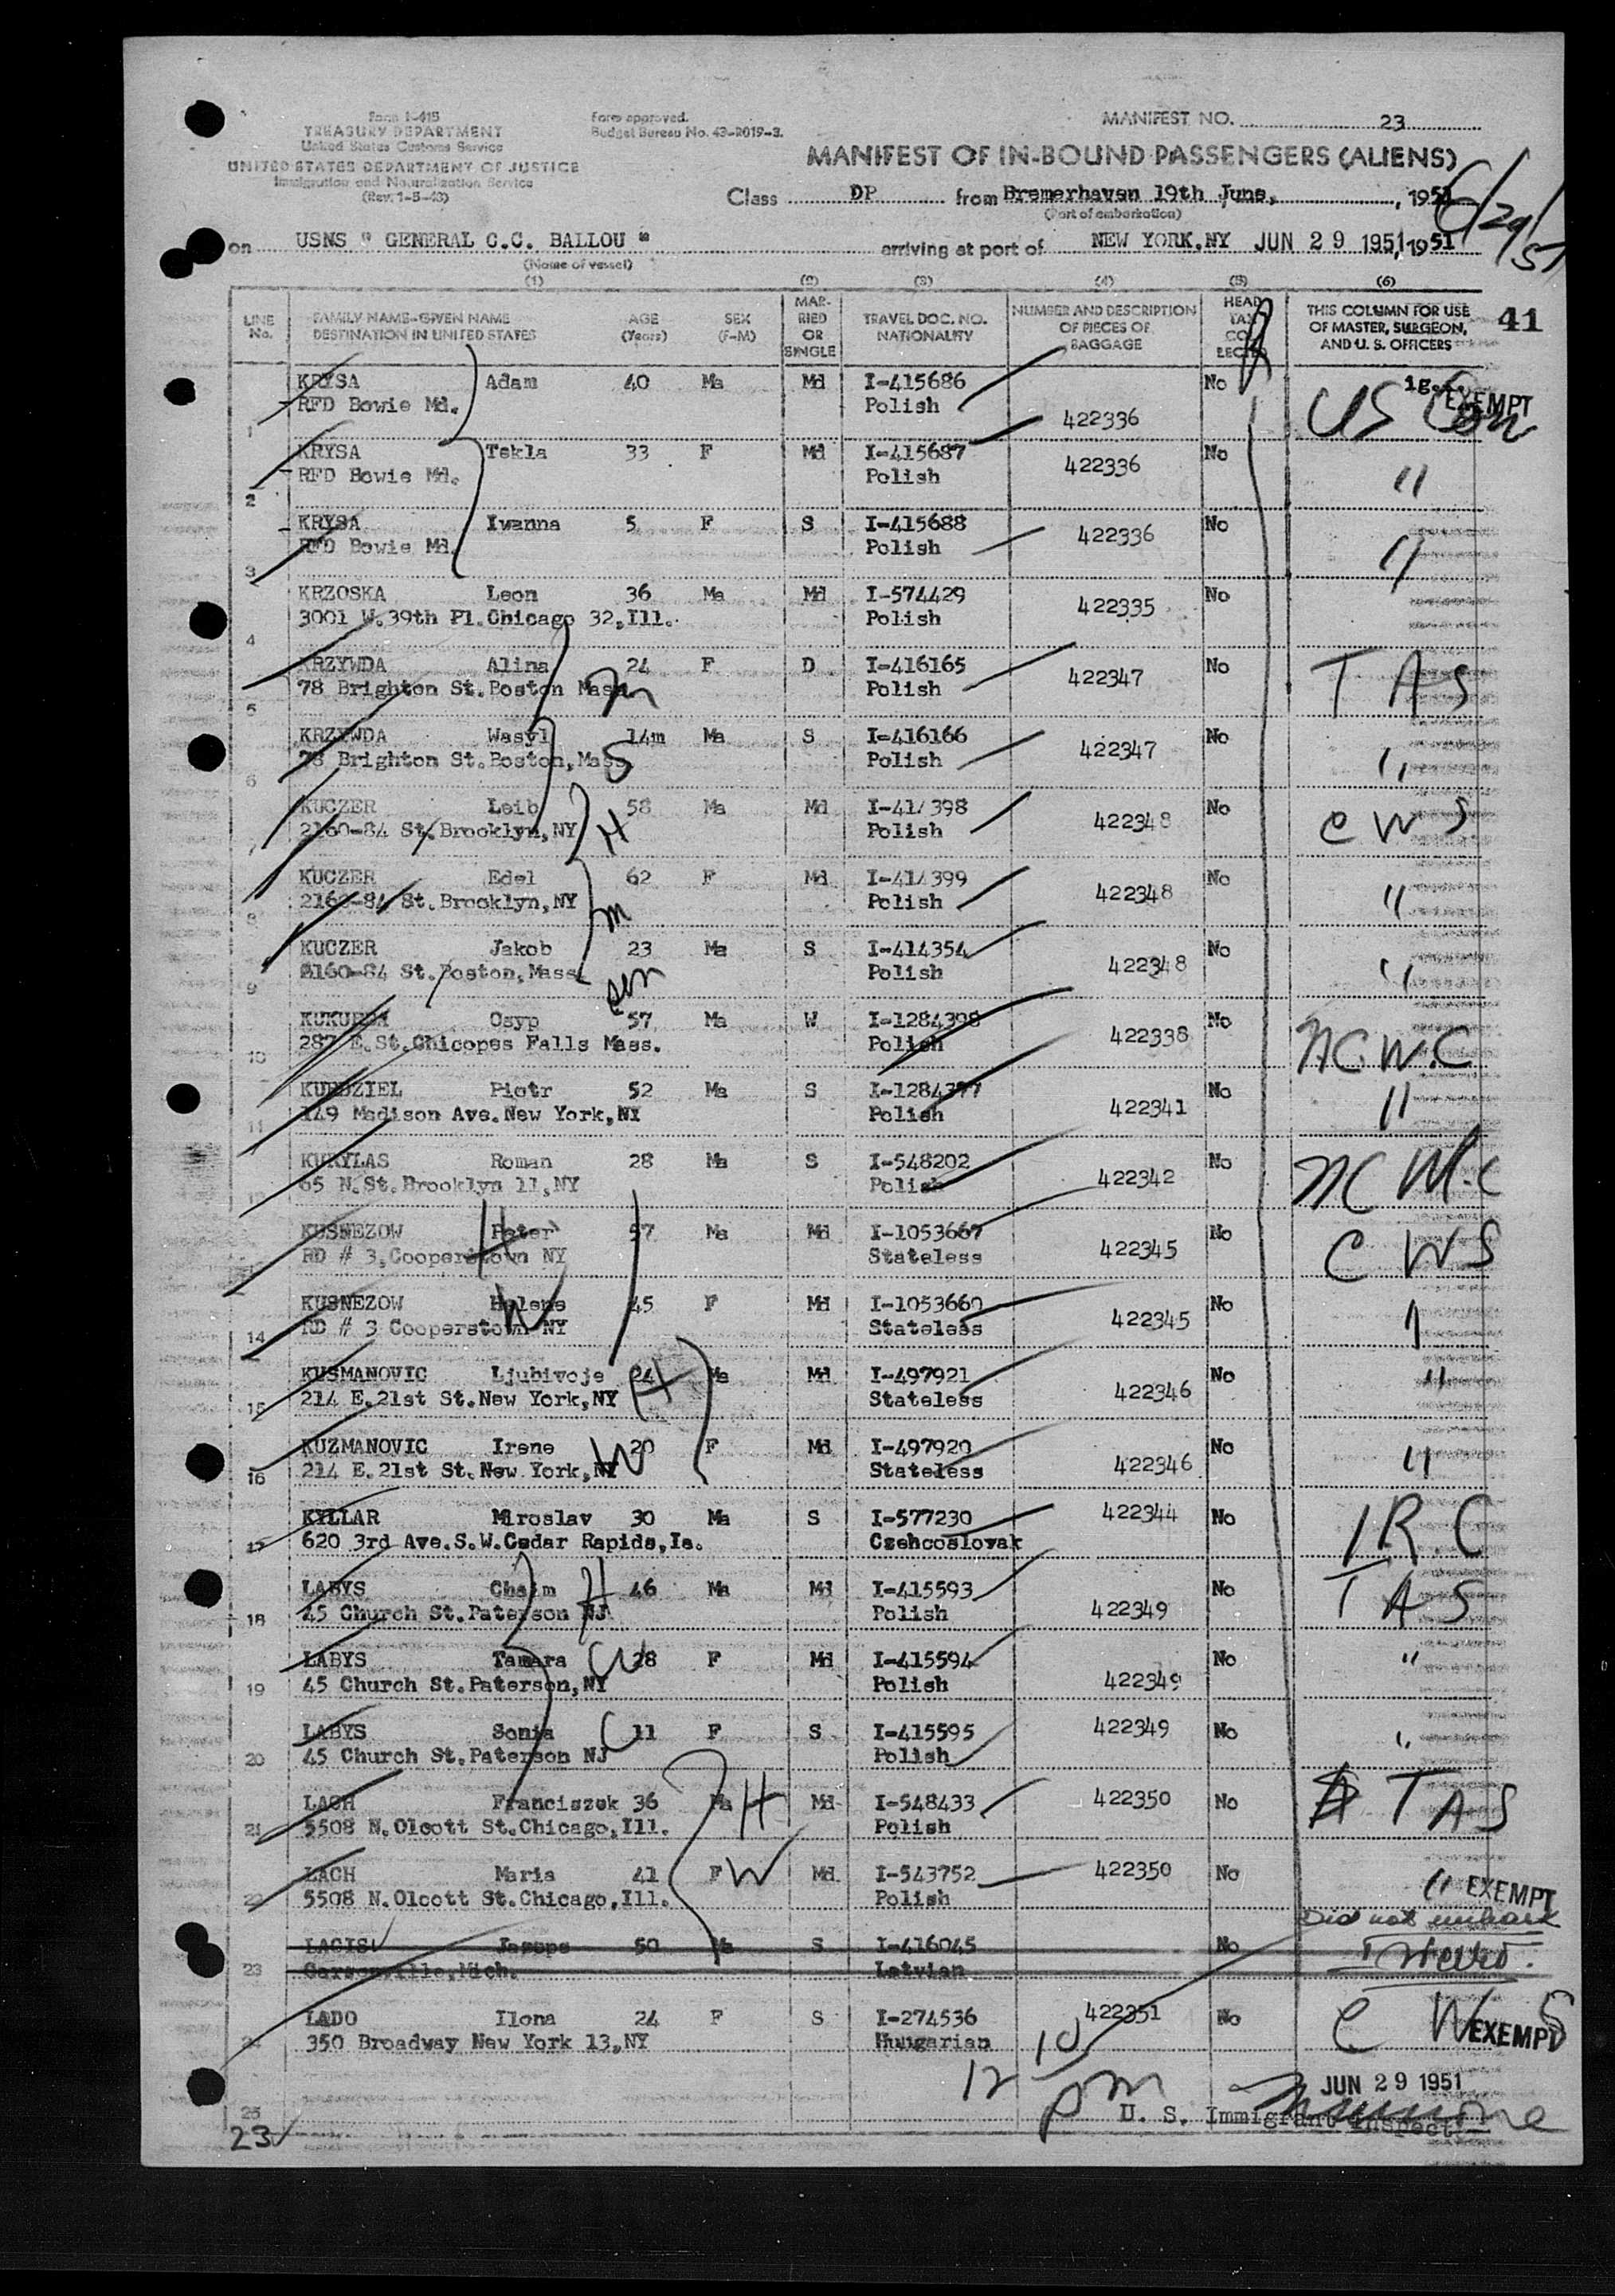 Form I-415
TREASURY DEPARTMENT
United States Customs Service
UNITED STATES DEPARTMENT OF JUSTICE
Immigration and Naturalization Service
(Rev. 1-5-43)
Form approved.
Budget Bureau No. 43-R019-3.
MANIFEST NO. 23
MANIFEST OF IN-BOUND PASSENGERS (ALIENS)
Class DP from Bremerhaven 19th June, , 1951
(Port of embarkation)
6/29/51
on USNS " GENERAL C.C. BALLOU " arriving at port of NEW YORK, NY JUN 29 1951, 1951
(Name of vessel)
(1) (2) (3) (4) (5) (6)
LINE No. FAMILY NAME-GIVEN NAME DESTINATION IN UNITED STATES AGE (Years) SEX (F-M) MARRIED OR SINGLE TRAVEL DOC. NO. NATIONALITY NUMBER AND DESCRIPTION OF PIECES OF BAGGAGE HEAD TAX COLLECTED THIS COLUMN FOR USE OF MASTER, SURGEON, AND U. S. OFFICERS 41
KRYSA Adam 40 Ma Md I-415686 No EXEMPT
1 RFD Bowie Md. Polish 422336 US
KRYSA Tekla 33 F Md I-415687 422336 No
2 RFD Bowie Md. Polish "
KRYSA Iwanna 5 F S I-415688 422336 No
3 RFD Bowie Md. Polish "
KRZOSKA Leon 36 Ma Md I-574429 422335 No
4 3001 W.39th Pl.Chicago 32,Ill. Polish
KRZYWDA Alina 24 F D I-416165 422347 No T A S
5 78 Brighton St.Boston Mass. m Polish
KRZYWDA Wasyl 14m Ma S I-416166 422347 No
6 78 Brighton St.Boston,Mass. S Polish "
KUCZER Leib 58 Ma Md 422348 No C W S
7 2160-84 St.Brooklyn,NY H Polish
KUCZER Edel 62 F Md I-414399 422348 No
8 2160-84 St.Brooklyn,NY m Polish "
KUCZER Jakob 23 Ma S I-414354 422348 No
9 2160-84 St.Boston,Mass. son Polish "
Osyp 57 Ma W I-1284398 422338 No N.C.W.C
10 287 E.St.Chicopes Falls Mass. Polish
KURDZIEL Piotr 52 Ma S I-1284397 422341 No
11 149 Madison Ave.New York,NY Polish "
KURYLAS Roman 28 Ma S I-548202 422342 No NC W.C
12 65 N.St.Brooklyn 11,NY Polish
KUSNEZOW Peter H 57 Ma Md I-1053667 422345 No C W S
13 RD # 3,Cooperstown NY Stateless
KUSNEZOW Helene W 45 F Md I-1053660 422345 No
14 RD # 3 Cooperstown NY Stateless
KUSMANOVIC Ljubivoje 24 H Ma Md I-497921 422346 No "
15 214 E.21st St.New York,NY Stateless
KUZMANOVIC Irene W 20 F Md I-497920 422346 No
16 214 E.21st St.New York,NY Stateless "
KYLLAR Miroslav 30 Ma S I-577230 422344 No I R.C
17 620 3rd Ave.S.W.Cedar Rapids,Ia. Czehcoslovak
LABYS Chaim H 46 Ma Md I-415593 422349 No T A S
18 45 Church St.Paterson NJ Polish
LABYS Tamara W 38 F Md I-415594 422349 No "
19 45 Church St.Paterson,NY Polish
LABYS Sonia C 11 F S I-415595 422349 No "
20 45 Church St.Paterson NJ Polish
LACH Franciszek 36 Ma H Md I-548433 422350 No T A S
21 5508 N.Olcott St.Chicago,Ill. Polish
LACH Maria 41 F W Md I-543752 422350 No " EXEMPT
22 5508 N.Olcott St.Chicago,Ill. Polish
Did not embark
LACIS Jazeps 50 Ma S I-416045 No
23 Carsonville,Mich. Latvian
LADO Ilona 24 F S I-274536 422351 No C W S EXEMPT
24 350 Broadway New York 13,NY Hungarian
12 10 pm JUN 29 1951
25 U. S. Immigrant Inspector
23